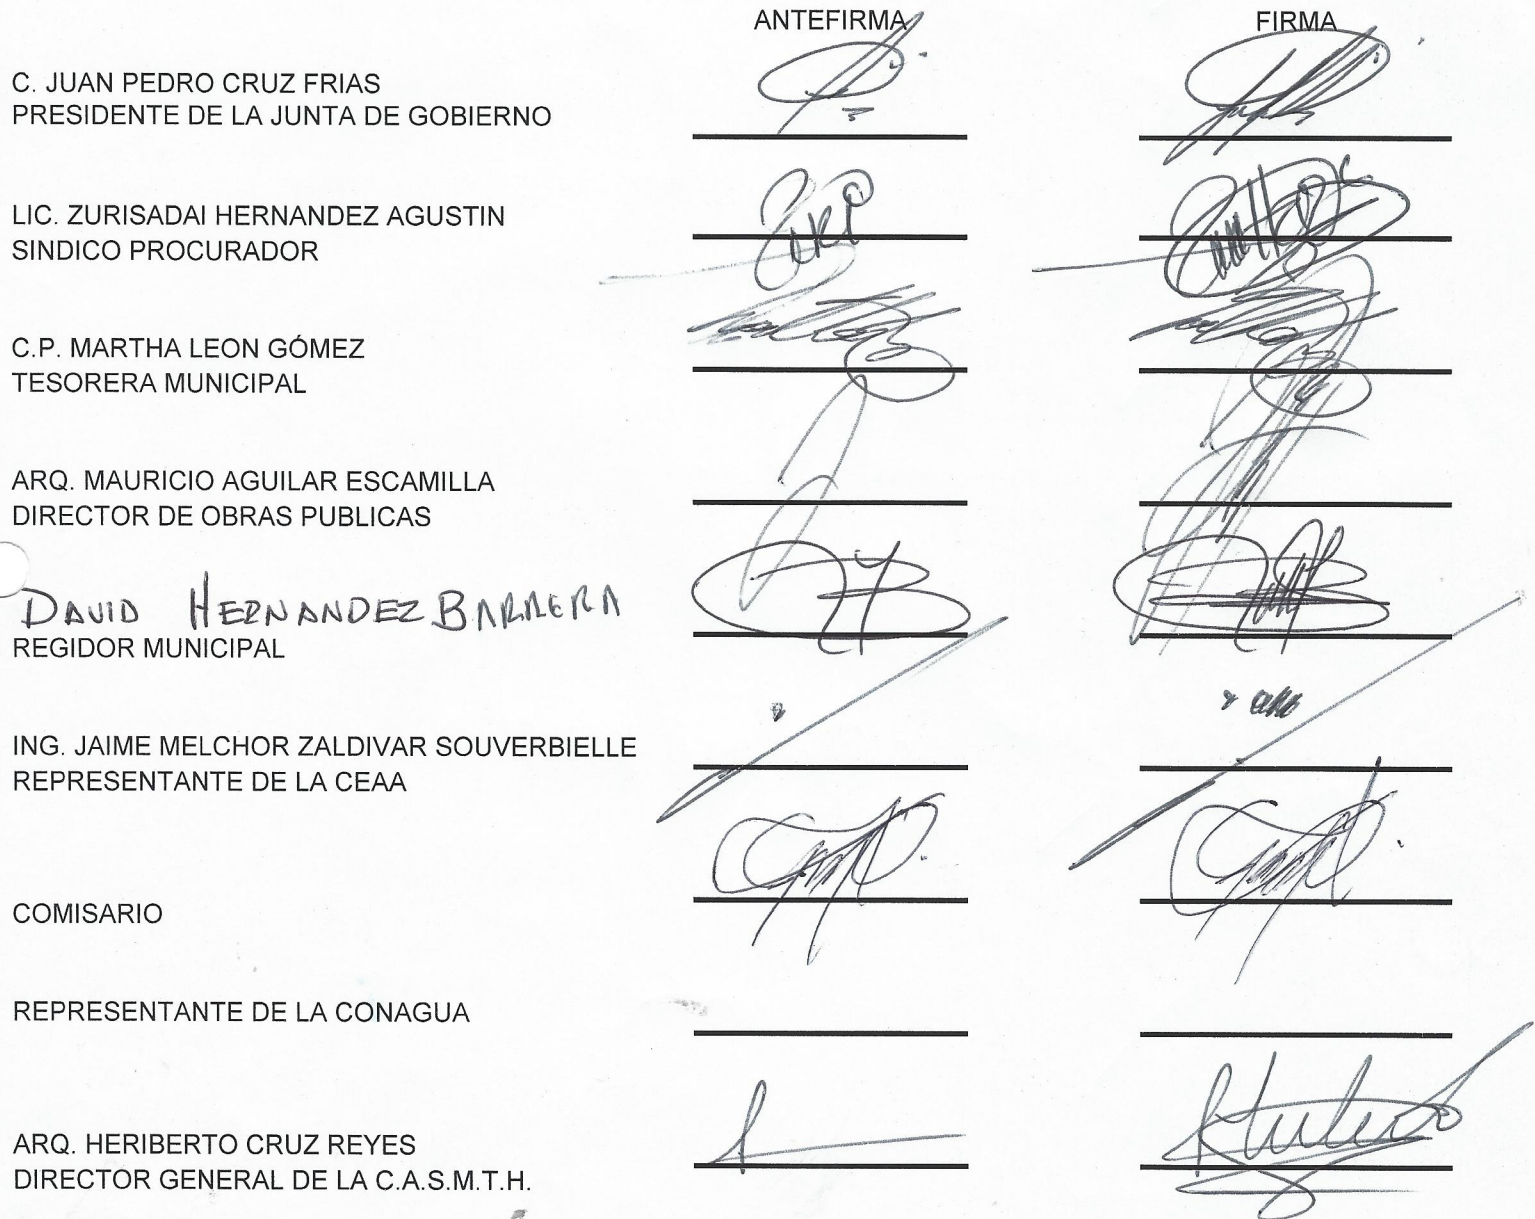 ANTEFIRMA FIRMA
C. JUAN PEDRO CRUZ FRIAS
PRESIDENTE DE LA JUNTA DE GOBIERNO
LIC. ZURISADAI HERNANDEZ AGUSTIN
SINDICO PROCURADOR
C.P. MARTHA LEON GÓMEZ
TESORERA MUNICIPAL
ARQ. MAURICIO AGUILAR ESCAMILLA
DIRECTOR DE OBRAS PUBLICAS
DAVID HERNANDEZ BARRERA
REGIDOR MUNICIPAL
ING. JAIME MELCHOR ZALDIVAR SOUVERBIELLE
REPRESENTANTE DE LA CEAA
COMISARIO
REPRESENTANTE DE LA CONAGUA
ARQ. HERIBERTO CRUZ REYES
DIRECTOR GENERAL DE LA C.A.S.M.T.H.